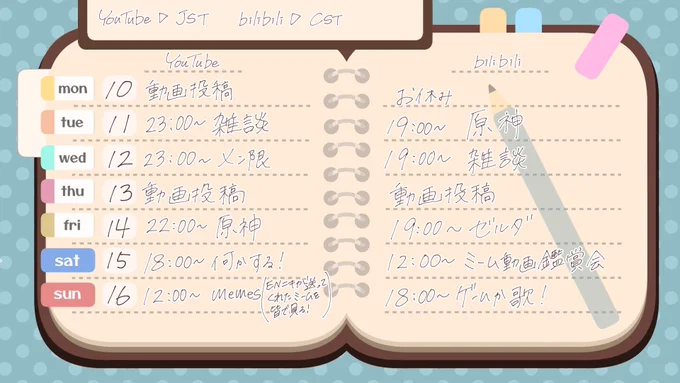 YouTube ▷ JST bilibili ▷ CST
YouTube
bilibili
mon 10 動画投稿
お休み
tue 11 23:00~ 雑談
19:00~ 原神
wed 12 23:00~ メン限
19:00~ 雑談
thu 13 動画投稿
動画投稿
fri 14 22:00~ 原神
19:00~ ゼルダ
sat 15 18:00~ 何かする!
12:00~ ミーム動画鑑賞会
sun 16 12:00~ memes (ENニキから送って
くれたミームを
皆で見る!)
18:00~ ゲームか歌!